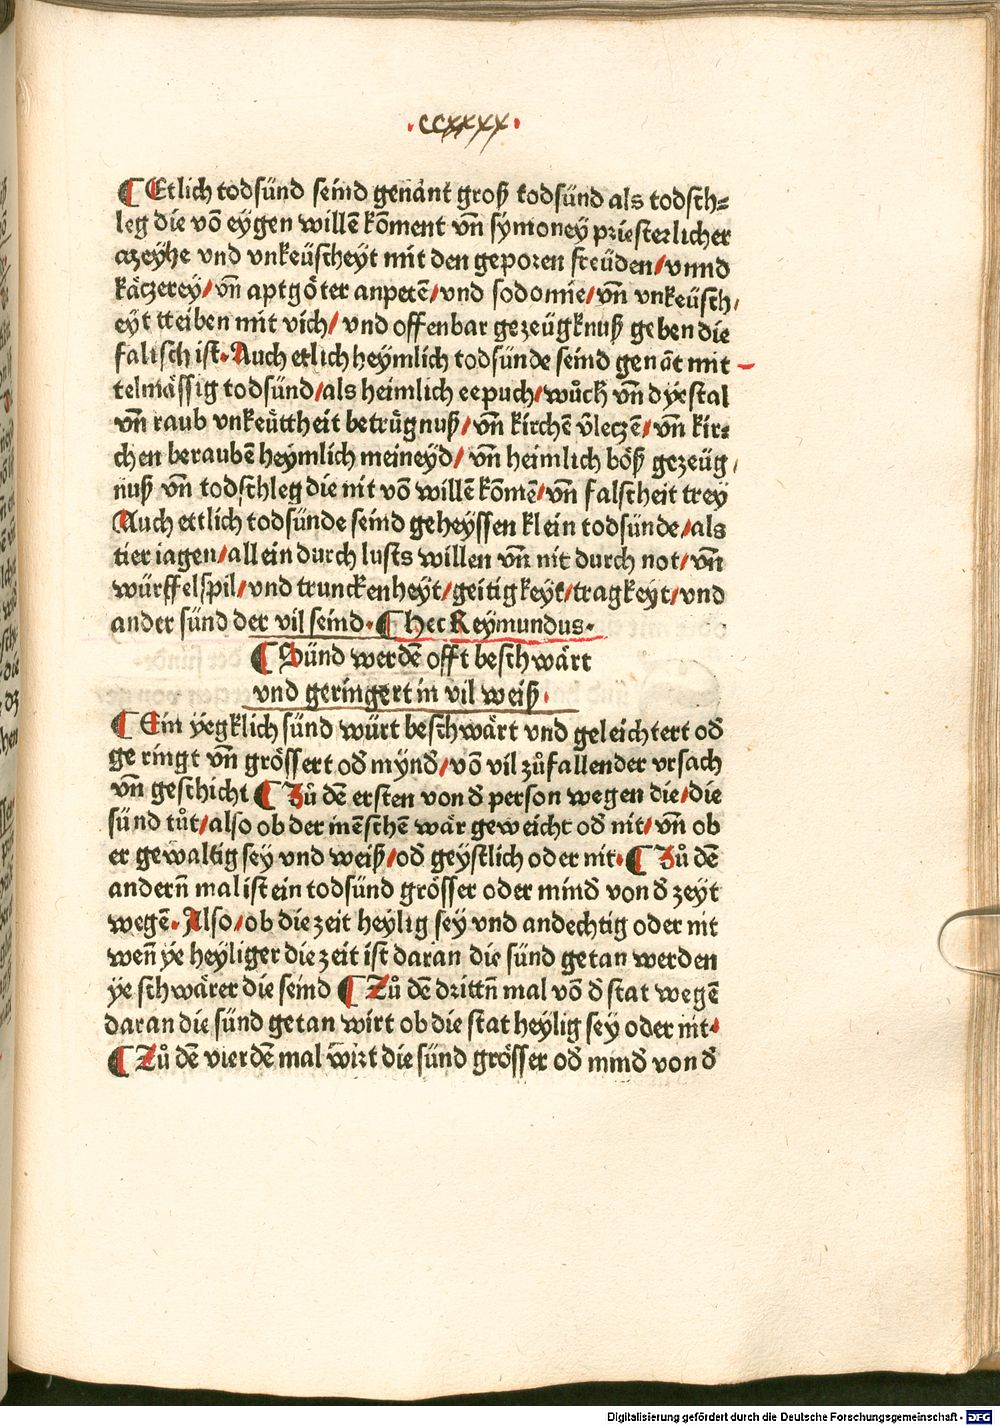 ·ccxxxx·
¶ Etlich todsünd seind genant groß todsünd als todsch⸗
leg die võ eygen willẽ kõment vñ symoney priesterlicher
azeyhe vnd vnkeüscheyt mit den geporen freüden/vnnd
kätzerey/vñ aptgöter anpetẽ/vnd sodomie/vñ vnkeüsch/
eyt treiben mit vich/vnd offenbar gezeügknuß geben die
falsch ist. Auch etlich heymlich todsünde seind genãt mit
telmässig todsünd/als heimlich eepuch/wůch vñ dyestal
vñ raub vnkeüttheit betrügnuß/vñ kirchẽ v̄letzẽ/vñ kir⸗
chen beraubẽ heymlich meineyd/vñ heimlich böß gezeüg/
nuß vñ todschleg die nit võ willẽ kõmẽ/vñ falscheit trey
Auch ettlich todsünde seind geheyssen klein todsünde/als
tier iagen/allein durch lusts willen vñ nit durch not/vñ
würffelspil/vnd trunckenheyt/geitigkeyt/tragkeyt/vnd
ander sünd der vil seind. ¶ Hec Reymundus.
¶ Sünd werdẽ offt beschwärt
vnd geringert in vil weiß.
¶ Ein yegklich sünd würt beschwärt vnd geleichtert oď
ge ringt vñ grössert oď mynď/võ vil zůfallender vrsach
vñ geschicht ¶ Zů dẽ ersten von ď person wegen die/die
sünd tůt/also ob der mẽschẽ wär geweicht oď nit/vñ ob
er gewaltig sey vnd weiß/oď geystlich oder nit. ¶ Zů dẽ
anderñ mal ist ein todsünd grösser oder minď von ď zeyt
wegẽ. Also/ob die zeit heylig sey vnd andechtig oder nit
weñ ye heyliger die zeit ist daran die sünd getan werden
ye schwärer die seind ¶ Zů dẽ drittñ mal võ ď stat wegẽ
daran die sünd getan wirt ob die stat heylig sey oder nit.
¶ Zů dẽ vierdẽ mal wirt die sünd grösser oď minď von ď
Digitalisierung gefördert durch die Deutsche Forschungsgemeinschaft - DFG